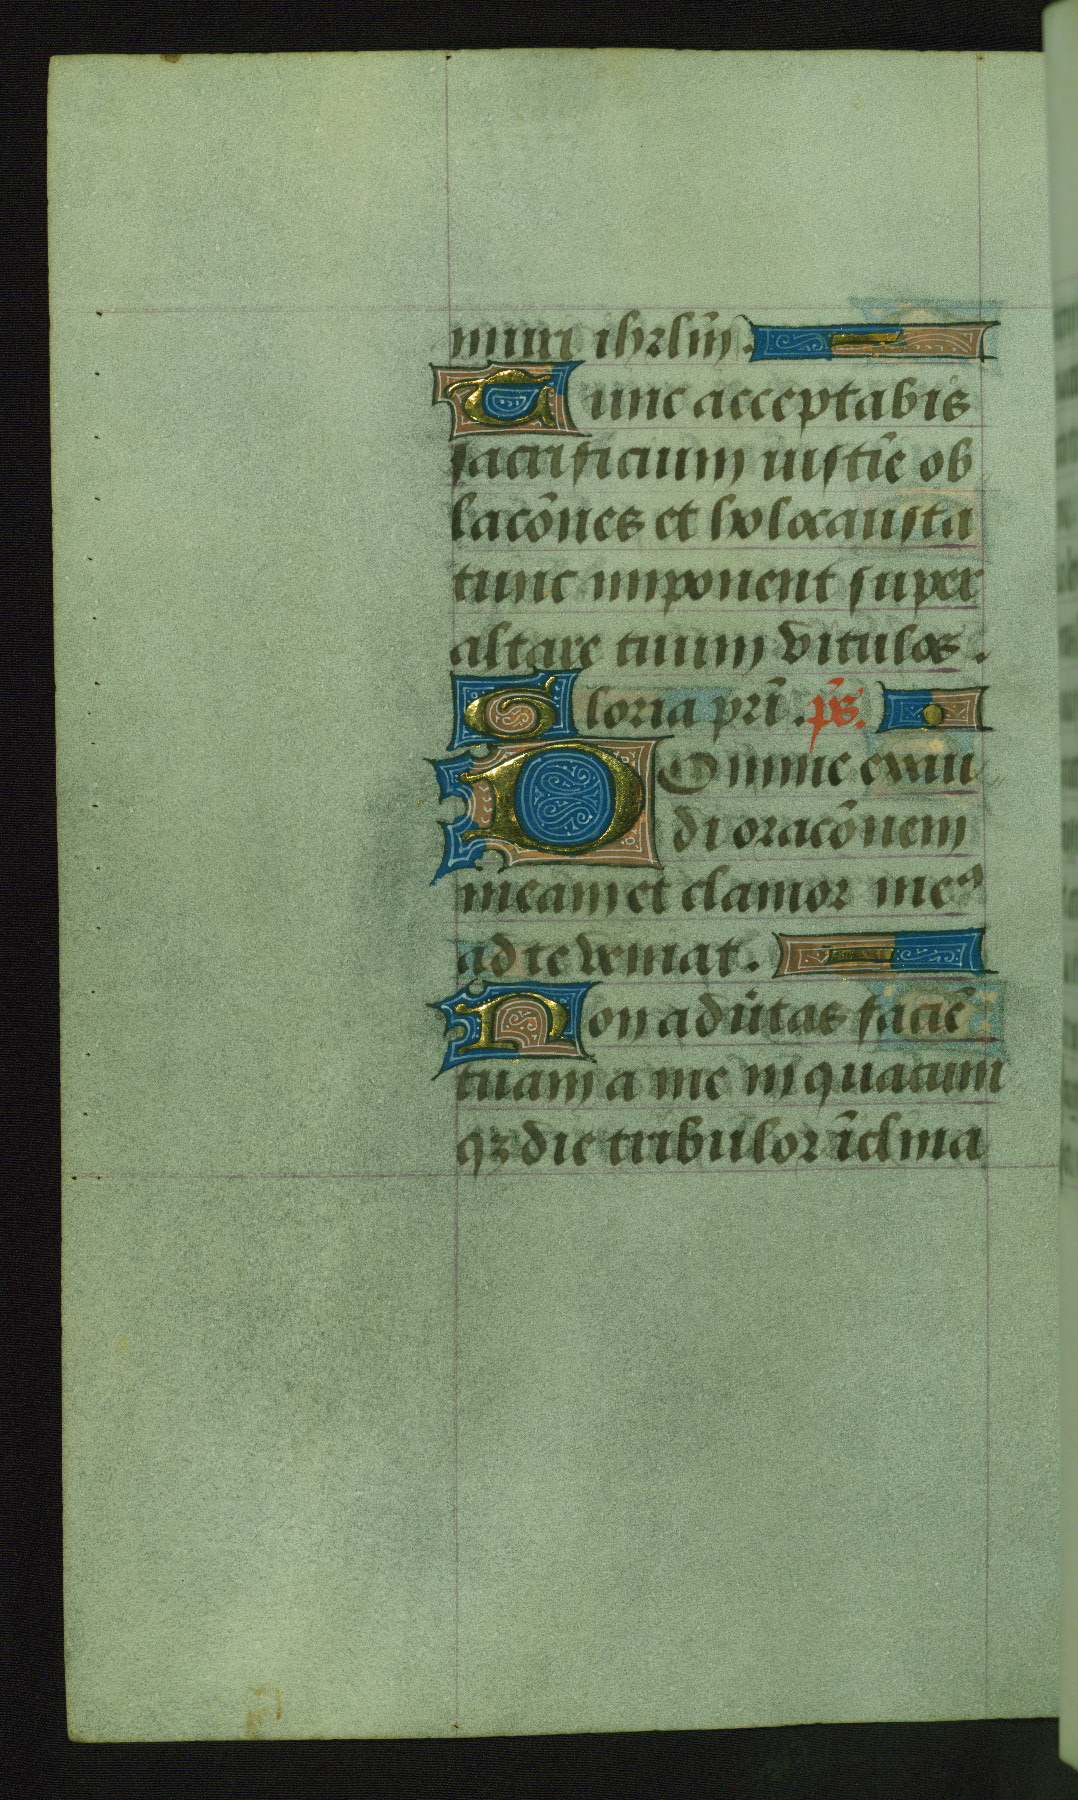 muri ihrl̄m̄.
Tunc acceptabis
sacrificium iustīe ob
lacōnes et holocausta
tunc imponent super
altare tuum vitulos.
Gloria prī. p̄s.
Domine exau
di oracōnem
meam et clamor meꝰ
ad te veniat.
Non adūtas faciē
tuam a me in quacum
qꝫ die tribulor īclina